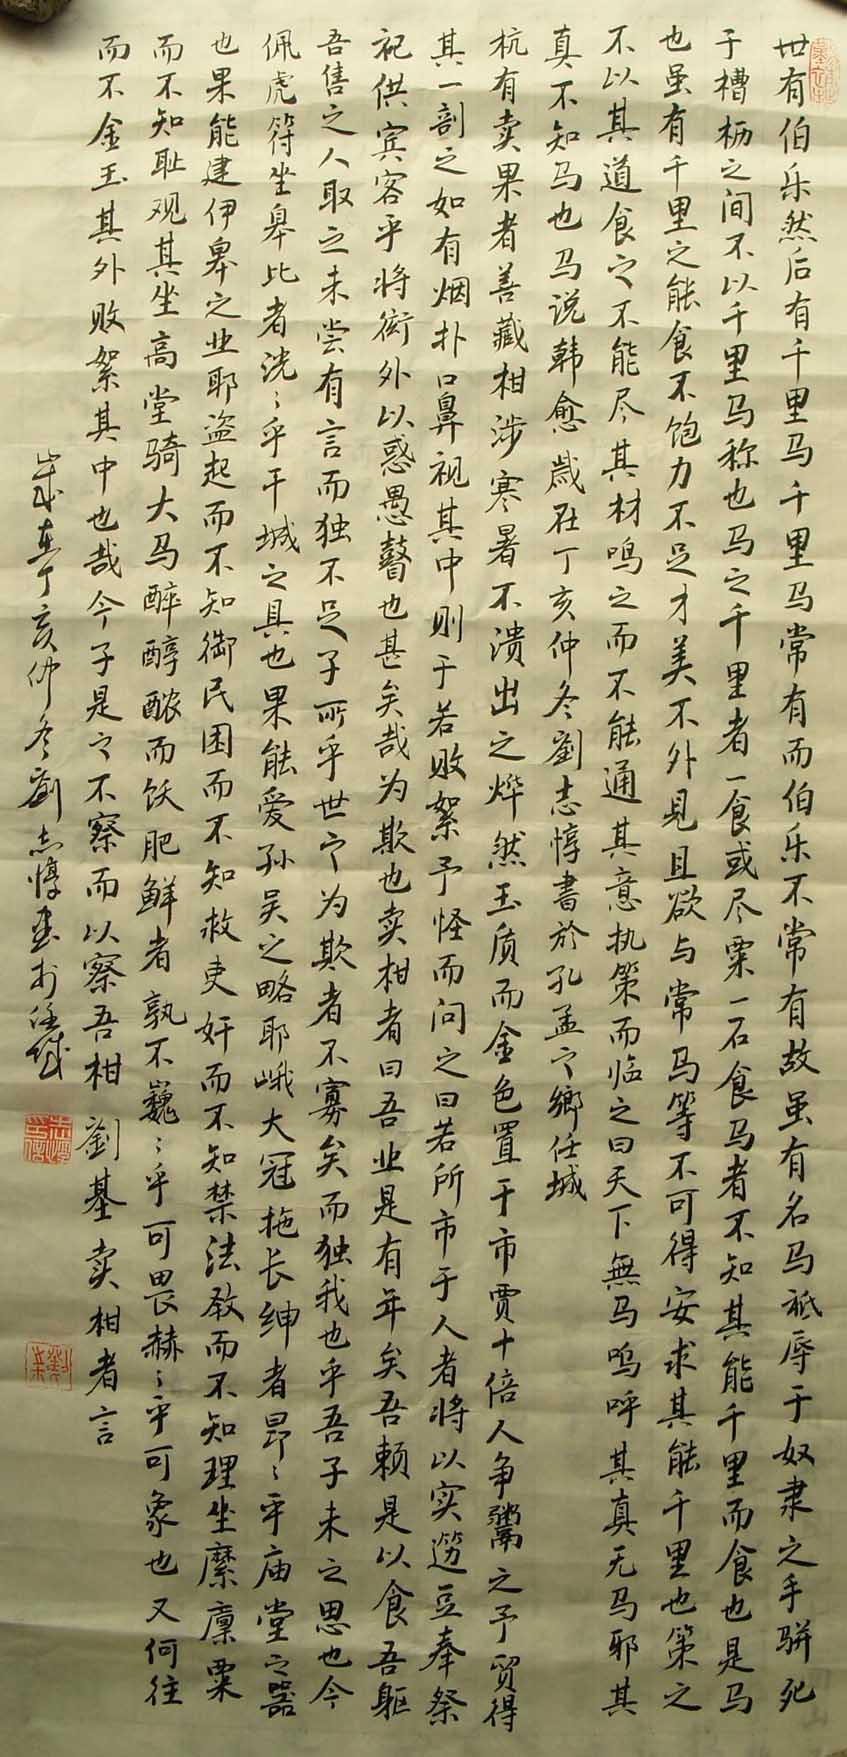 世有伯乐然后有千里马千里马常有而伯乐不常有故虽有名马祗辱于奴隶之手骈死
于槽枥之间不以千里马称也马之千里者一食或尽粟一石食马者不知其能千里而食也是马
也虽有千里之能食不饱力不足才美不外见且欲与常马等不可得安求其能千里也策之
不以其道食之不能尽其材鸣之而不能通其意执策而临之曰天下無马呜呼其真无马邪其
真不知马也马说韩愈歲在丁亥仲冬劉志惇書於孔孟之鄉任城
杭有卖果者善藏柑涉寒暑不溃出之烨然玉质而金色置于市贾十倍人争鬻之予贸得
其一剖之如有烟扑口鼻视其中则干若败絮予怪而问之曰若所市于人者将以实笾豆奉祭
祀供宾客乎将衒外以惑愚瞽也甚矣哉为欺也卖柑者曰吾业是有年矣吾赖是以食吾躯
吾售之人取之未尝有言而独不足子所乎世之为欺者不寡矣而独我也乎吾子未之思也今
佩虎符坐皋比者洸〻乎干城之具也果能爱孙吴之略耶峨大冠拖长绅者昂〻乎庙堂之器
也果能建伊皋之业耶盗起而不知御民困而不知救吏奸而不知禁法敎而不知理坐縻廪粟
而不知耻观其坐高堂骑大马醉醇醲而饫肥鲜者孰不巍〻乎可畏赫〻乎可象也又何往
而不金玉其外败絮其中也哉今子是之不察而以察吾柑 劉基卖柑者言
歲在丁亥仲冬劉志惇書於任城